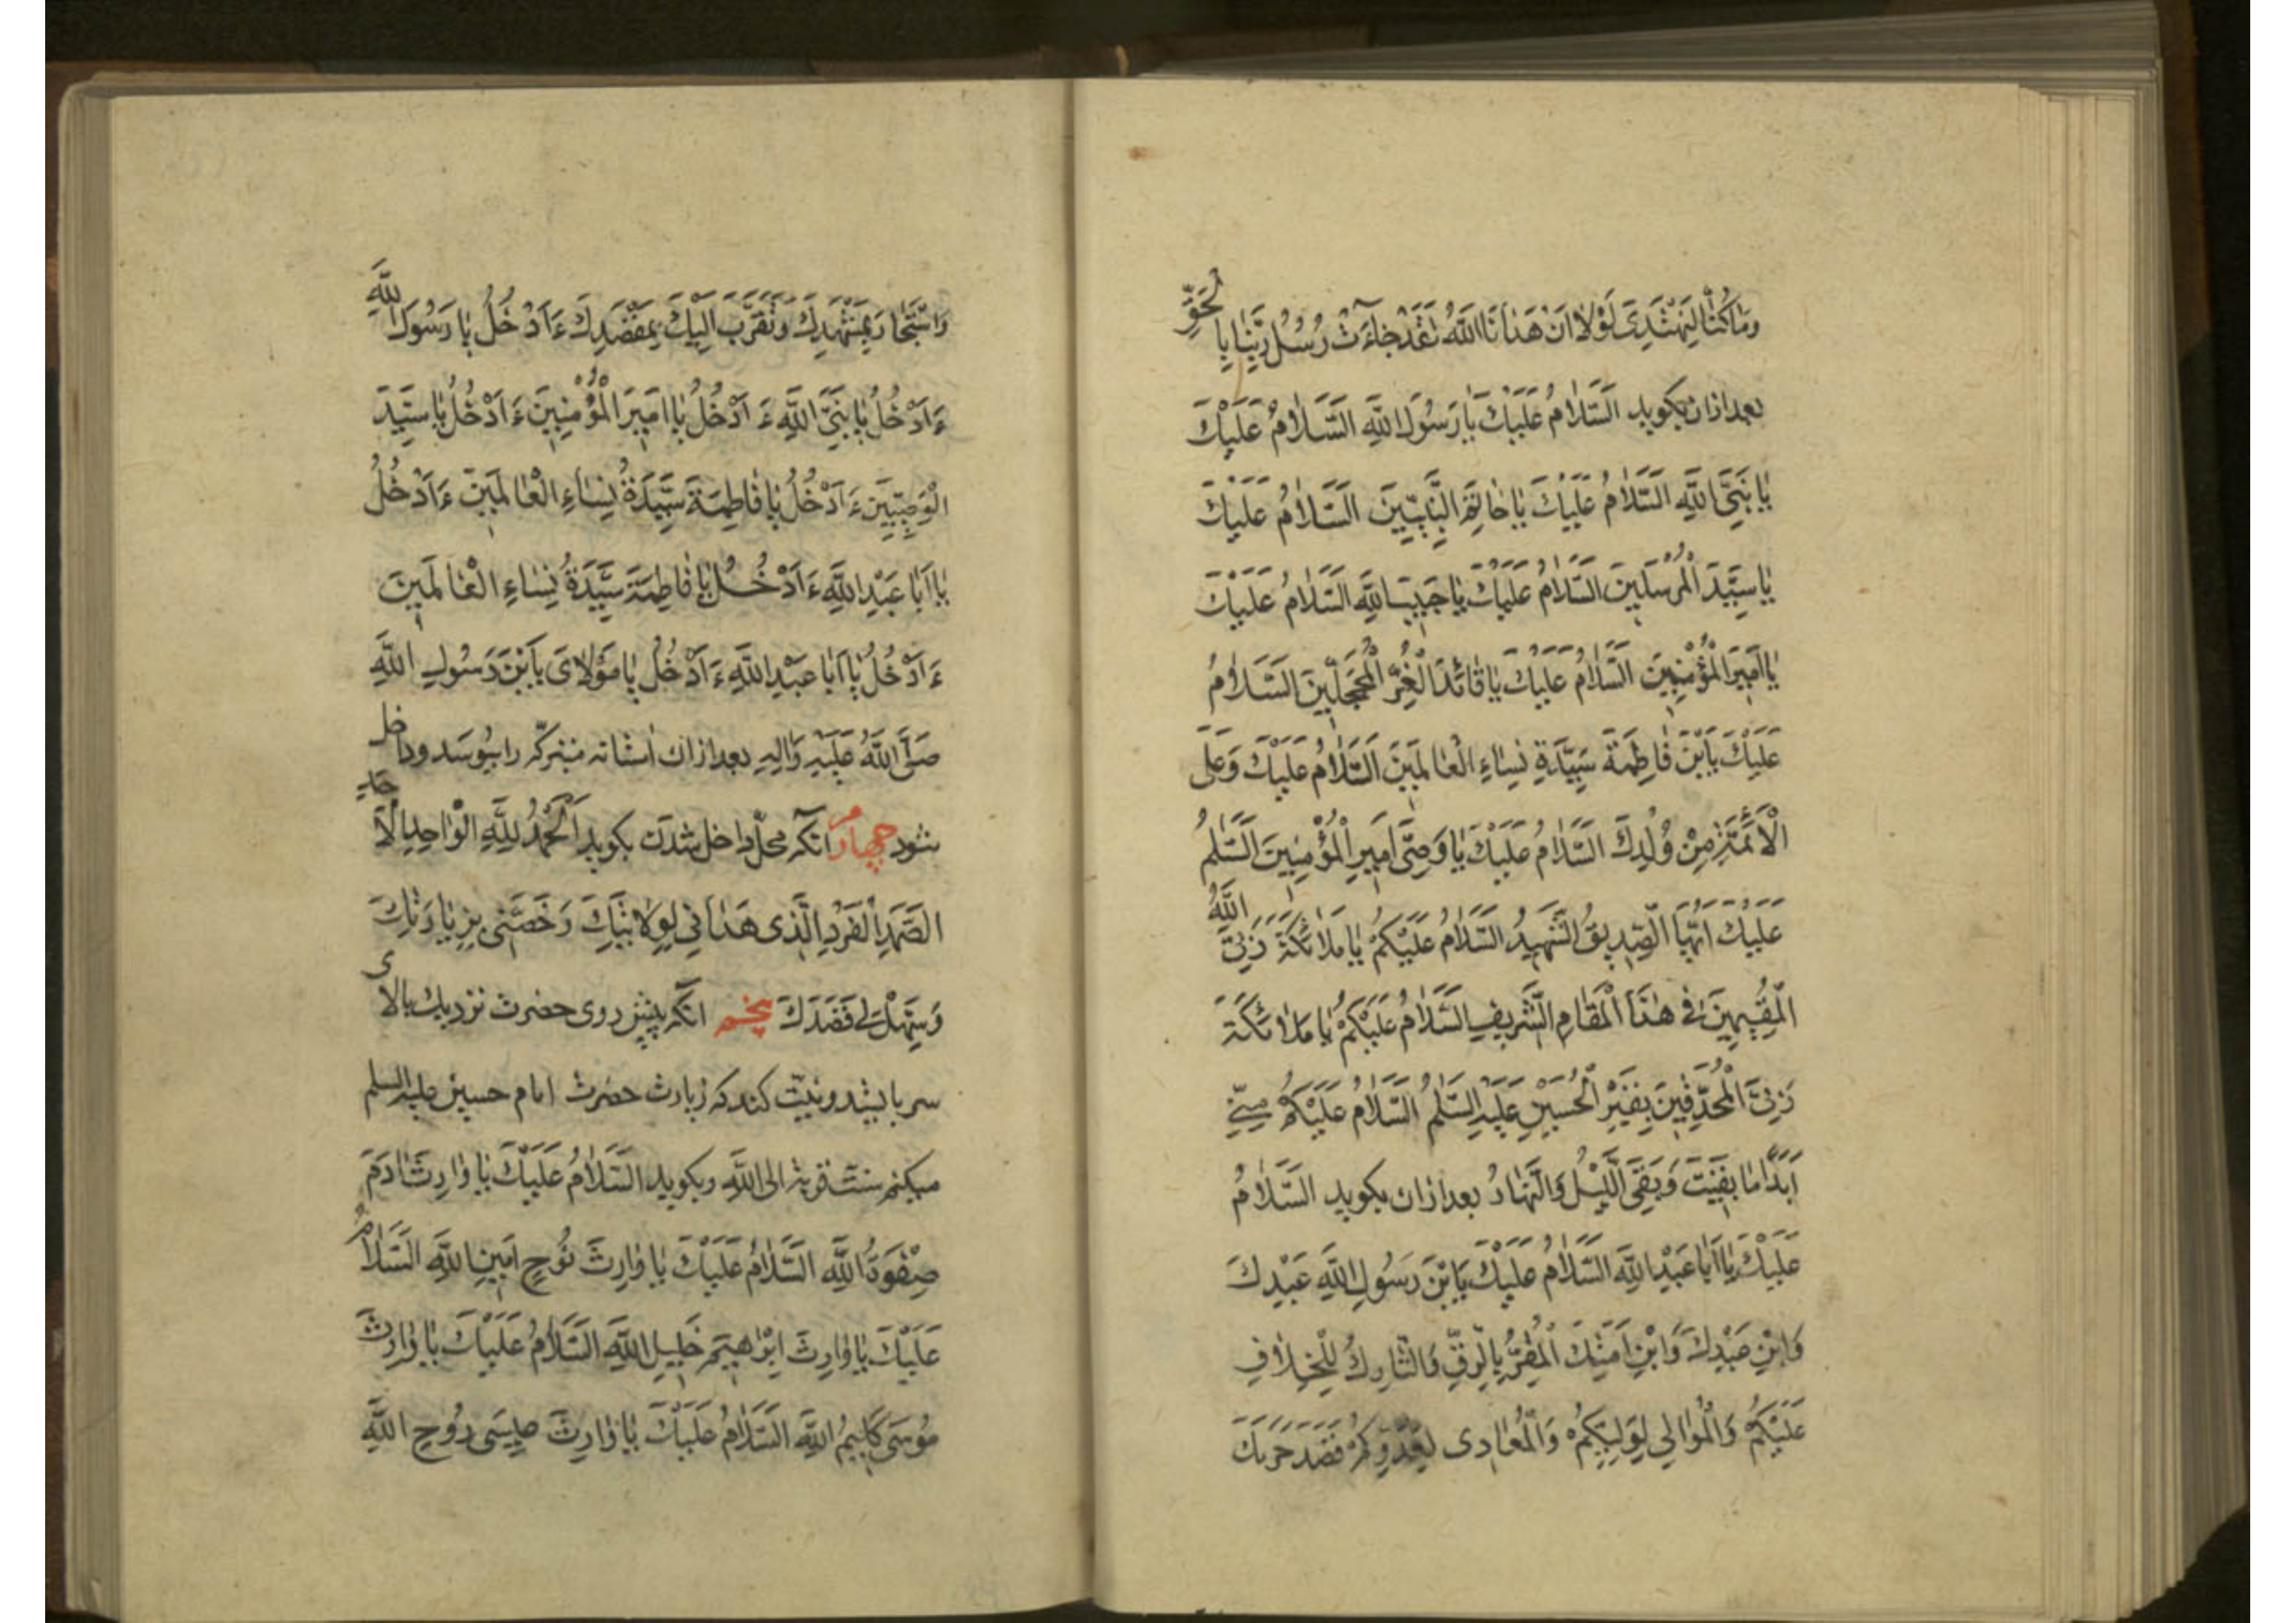 وَمَا كُنَّا لِنَهْتَدِيَ لَوْلَا اَنْ هَدَانَا اللَّهُ لَقَدْ جَاءَتْ رُسُلُ رَبِّنَا بِالْحَقِّ
بعد ازان بکوید اَلسَّلَامُ عَلَيْكَ يَا رَسُولَ اللَّهِ السَّلَامُ عَلَيْكَ
يَا نَبِيَّ اللَّهِ السَّلَامُ عَلَيْكَ يَا خَاتَمَ النَّبِيِّينَ السَّلَامُ عَلَيْكَ
يَا سَيِّدَ الْمُرْسَلِينَ السَّلَامُ عَلَيْكَ يَا حَبِيبَ اللَّهِ السَّلَامُ عَلَيْكَ
يَا اَمِيرَ الْمُؤْمِنِينَ السَّلَامُ عَلَيْكَ يَا قَائِدَ الْغُرِّ الْمُحَجَّلِينَ السَّلَامُ
عَلَيْكَ يَا بْنَ فَاطِمَةَ سَيِّدَةِ نِسَاءِ الْعَالَمِينَ السَّلَامُ عَلَيْكَ وَعَلَى
الْاَئِمَّةِ مِنْ وُلْدِكَ السَّلَامُ عَلَيْكَ يَا وَصِيَّ اَمِيرِ الْمُؤْمِنِينَ السَّلَمُ
عَلَيْكَ اَيُّهَا الصِّدِيقُ الشَّهِيدُ السَّلَامُ عَلَيْكُمْ يَا مَلَائِكَةَ رَبِّيَ اللَّهُ
الْمُقِيمِينَ فِي هٰذَا الْمَقَامِ الشَّرِيفِ السَّلَامُ عَلَيْكُمْ يَا مَلَائِكَةَ
رَبِّيَ الْمُحْدِقِينَ بِقَبْرِ الْحُسَيْنِ عَلَيْهِ السَّلَمُ السَّلَامُ عَلَيْكُمْ مِنِّي
اَبَدًا مَا بَقِيتُ وَبَقِيَ اللَّيْلُ وَالنَّهَارُ بعد ازان بکوید السَّلَامُ
عَلَيْكَ يَا اَبَا عَبْدِ اللَّهِ السَّلَامُ عَلَيْكَ يَا بْنَ رَسُولِ اللَّهِ عَبْدِكَ
وَابْنِ عَبْدِكَ وَابْنِ اَمَتِكَ الْمُقِرُّ بِالرِّقِّ وَالتَّارِكُ لِلْخِلَافِ
عَلَيْكُمْ وَالْمُوَالِي لِوَلِيِّكُمْ وَالْمُعَادِي لِعَدُوِّكُمْ قَصَدَ حَرَمَكَ
وَاسْتَجَارَ بِمَشْهَدِكَ وَتَقَرَّبَ اِلَيْكَ بِمَقْصَدِكَ ءَاَدْخُلُ يَا رَسُولَ اللَّهِ
ءَاَدْخُلُ يَا نَبِيَّ اللَّهِ ءَاَدْخُلُ يَا اَمِيرَ الْمُؤْمِنِينَ ءَاَدْخُلُ يَا سَيِّدَ
الْوَصِيِّينَ ءَاَدْخُلُ يَا فَاطِمَةَ سَيِّدَةُ نِسَاءِ الْعَالَمِينَ ءَاَدْخُلُ
يَا اَبَا عَبْدِ اللَّهِ ءَاَدْخُلُ يَا فَاطِمَةَ سَيِّدَةُ نِسَاءِ الْعَالَمِينَ
ءَاَدْخُلُ يَا اَبَا عَبْدِ اللَّهِ ءَاَدْخُلُ يَا مَوْلَايَ يَا بْنَ رَسُولِ اللَّهِ
صَلَّى اللَّهُ عَلَيْهِ وَاٰلِهِ بعد ازان استانه متبرکه را ببوسد و داخل
شود چهارم انکه محل داخل شدن بکوید اَلْحَمْدُ لِلَّهِ الْوَاحِدِ الْاَحَدِ
الصَّمَدِ الْفَرْدِ الَّذِي هَدَانِي لِوِلَايَتِكَ وَخَصَّنِي بِزِيَارَتِكَ
وَسَهَّلَ لِي قَصْدَكَ پنجم انکه پیش روی حضرت نزدیك بالای
سر بایشد ونیت کند که زیارت حضرت امام حسین علیه السلم
میکنم سنت قربة الی الله وبکوید السَّلَامُ عَلَيْكَ يَا وَارِثَ اٰدَمَ
صِفْوَةُ اللَّهِ السَّلَامُ عَلَيْكَ يَا وَارِثَ نُوحٍ اَمِينِ اللَّهِ السَّلَامُ
عَلَيْكَ يَا وَارِثَ اِبْرَاهِيمَ خَلِيلِ اللَّهِ السَّلَامُ عَلَيْكَ يَا وَارِثَ
مُوسَى كَلِيمُ اللَّهِ السَّلَامُ عَلَيْكَ يَا وَارِثَ عِيسَى رُوحِ اللَّهِ